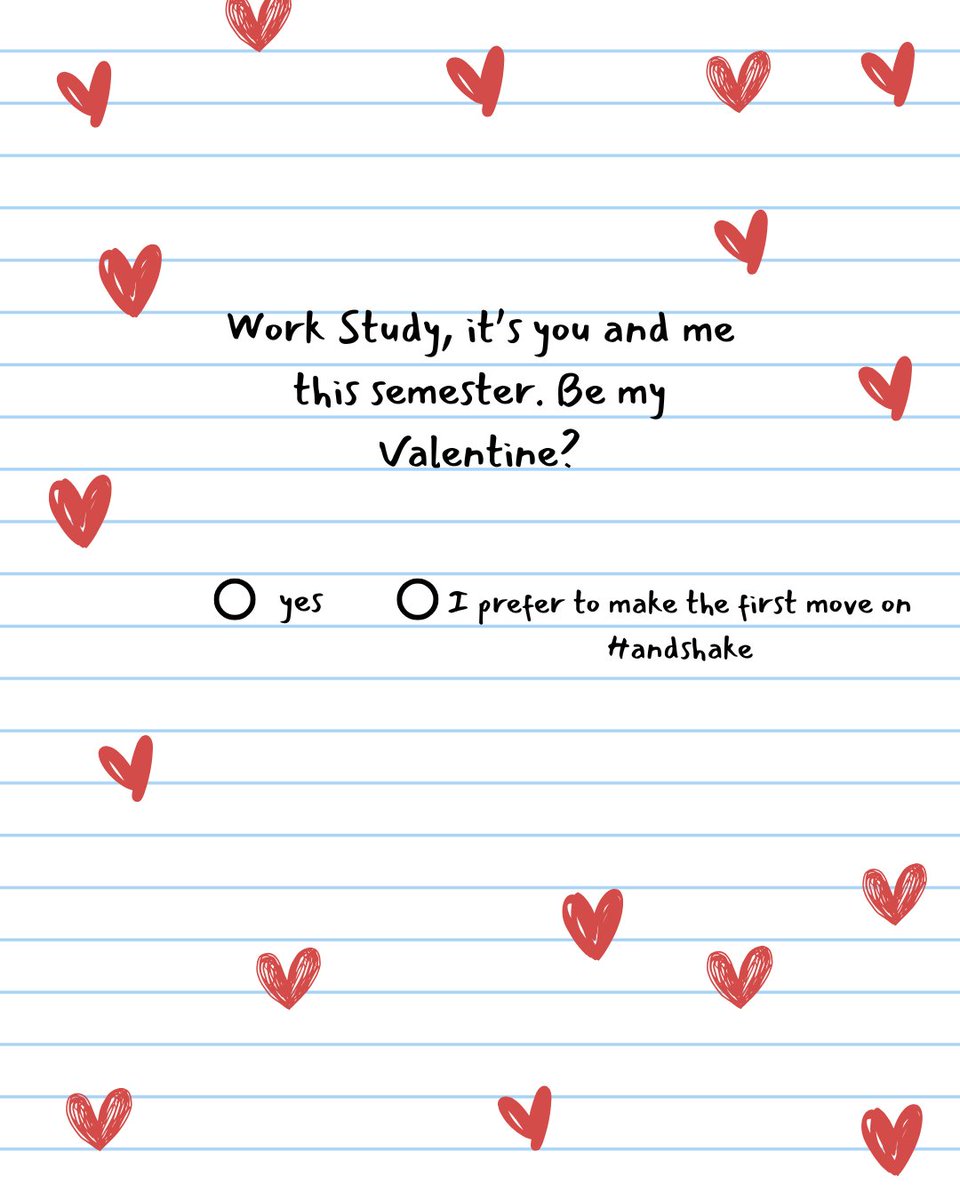 Work Study, it's you and me
this semester. Be my
Valentine?
yes
I prefer to make the first move on
Handshake